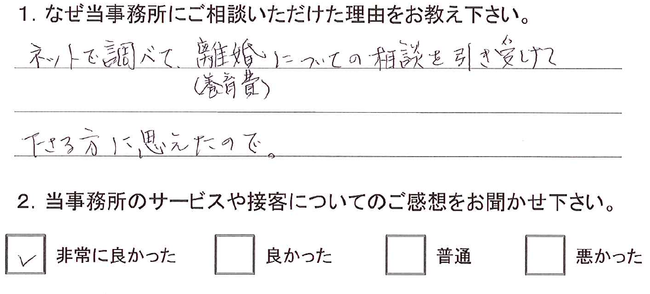 1. なぜ当事務所にご相談いただけた理由をお教え下さい。
ネットで調べて、離婚についての相談を引き受けて
(養育費)
下さる方に思えたので。
2. 当事務所のサービスや接客についてのご感想をお聞かせ下さい。
✓ 非常に良かった 良かった 普通 悪かった